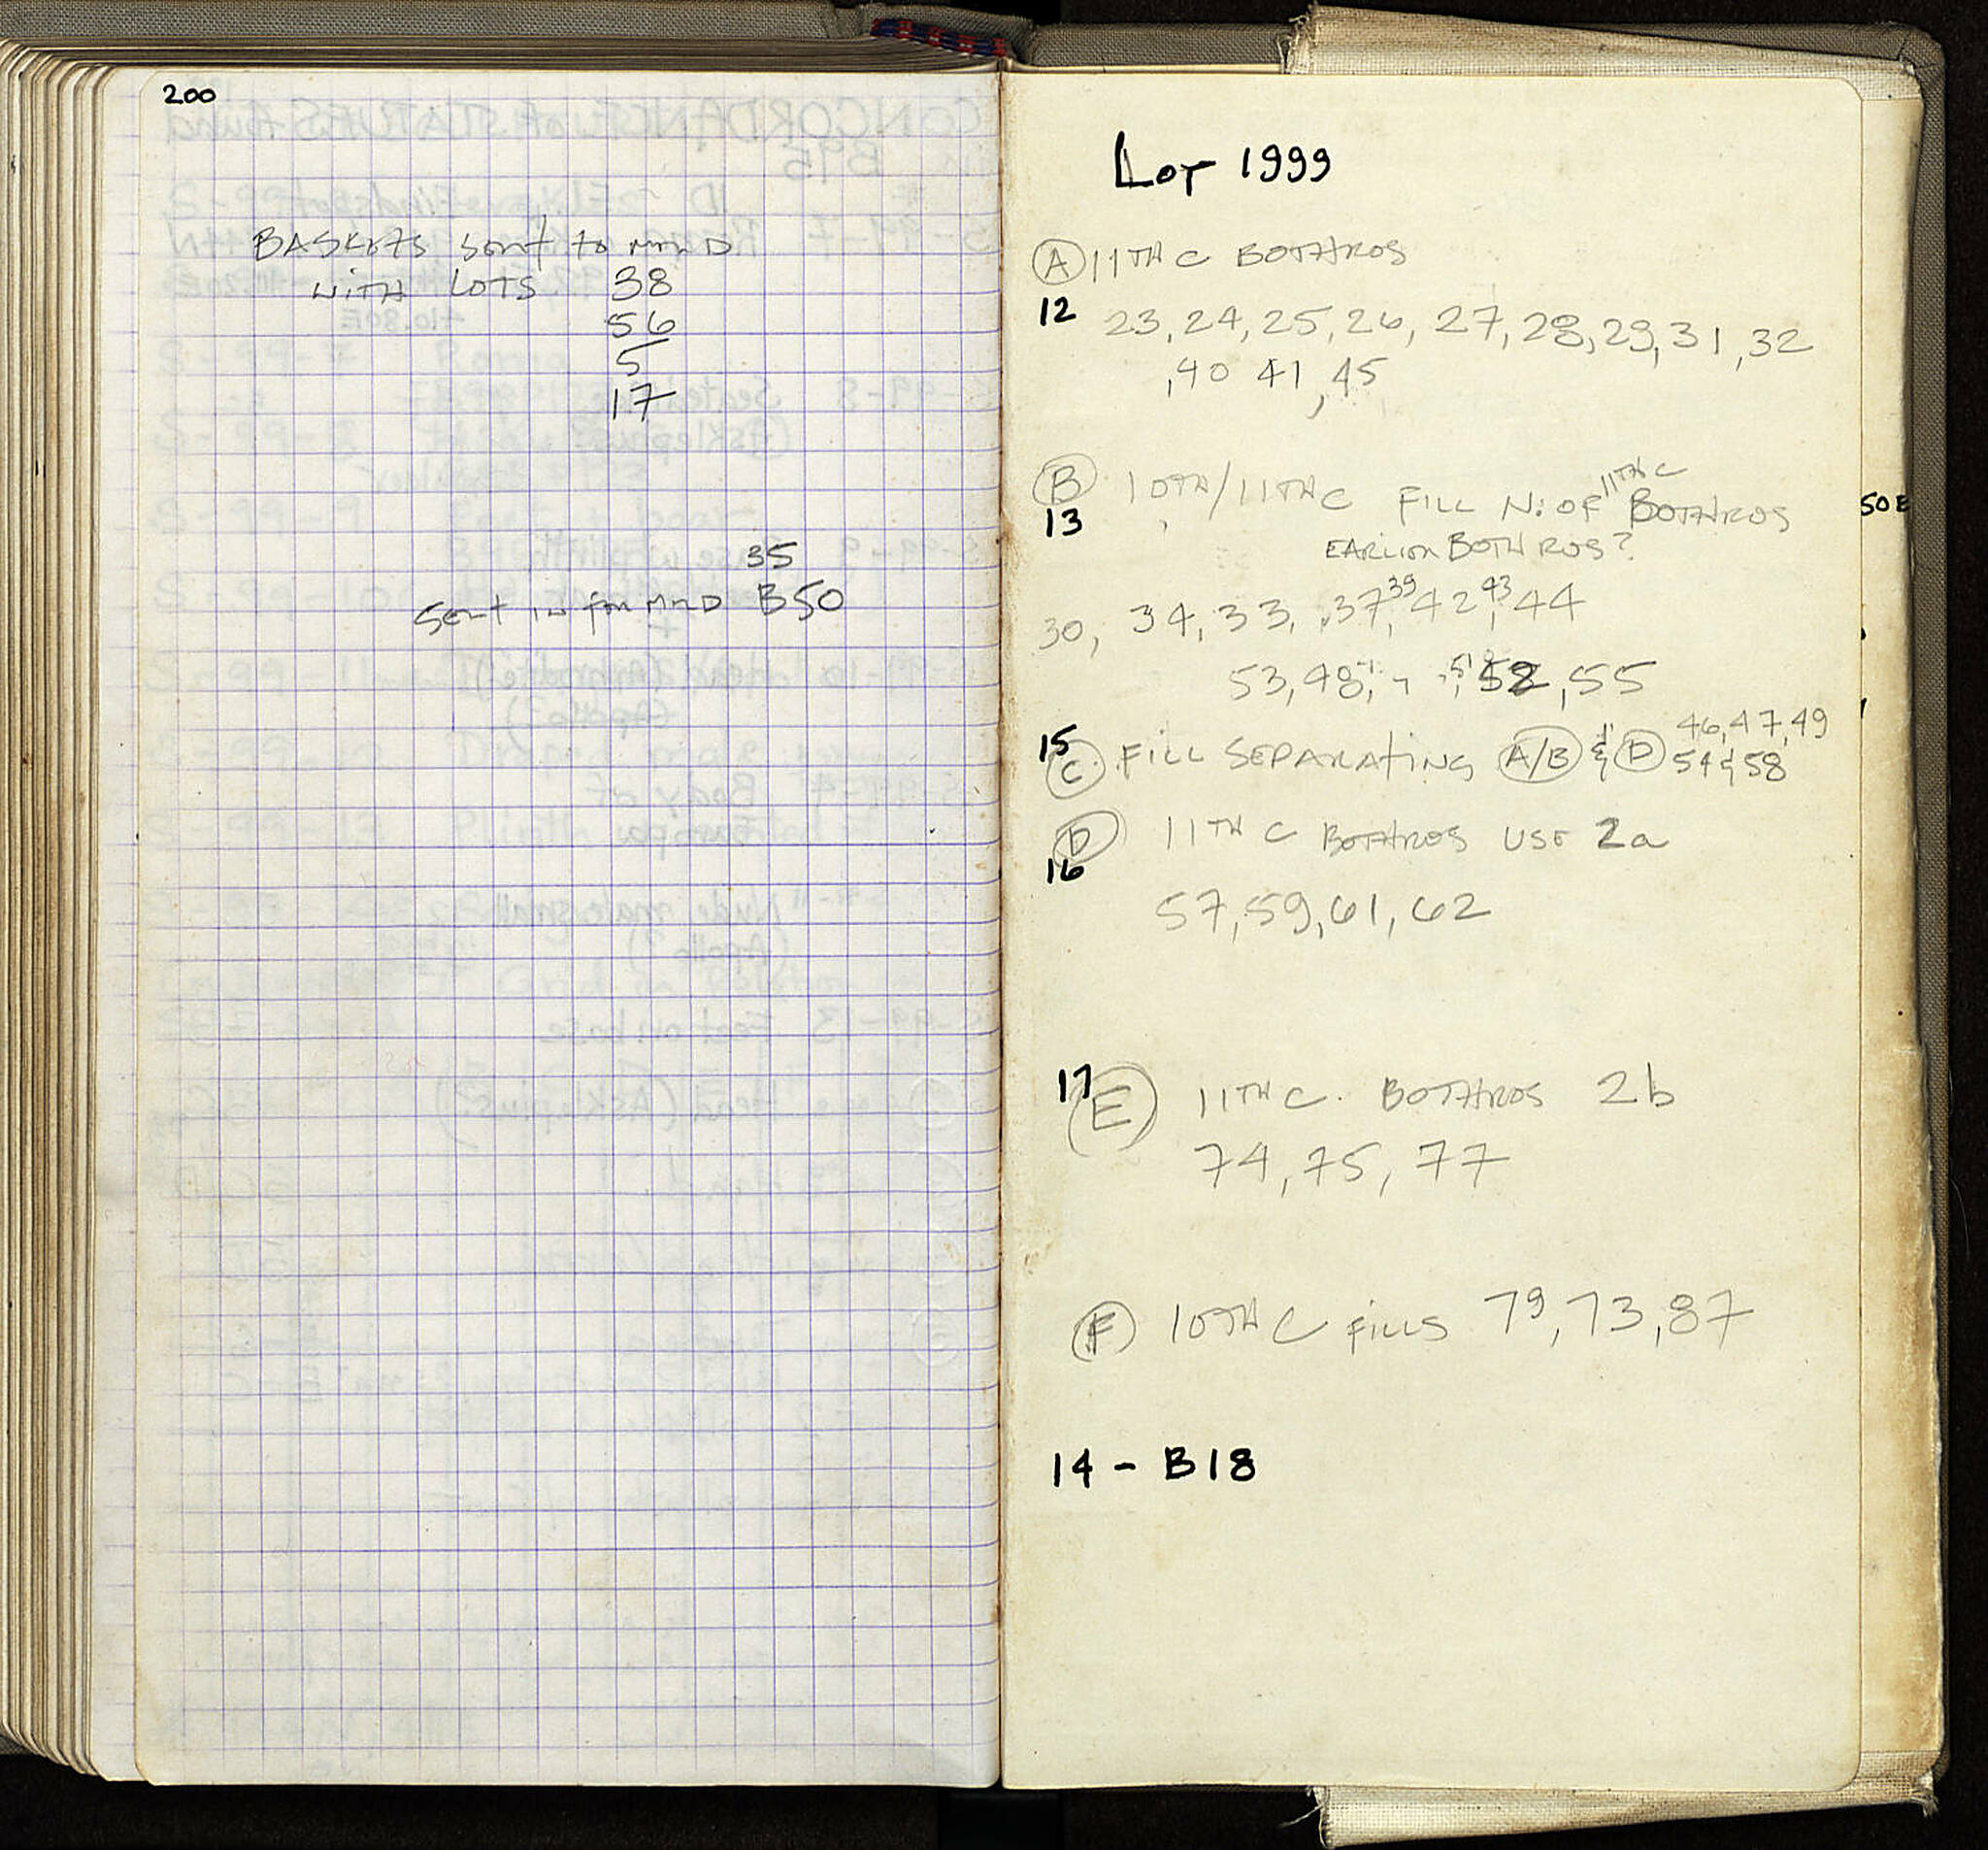 200
BASKETS sent to MMD
WITH LOTS 38
56
5
17
35
Sent in for MMD B50
Lot 1999
A 11TH C BOTHROS
12 23, 24, 25, 26, 27, 28, 29, 31, 32
, 40 41, 45
B 10TH/11TH C FILL N: OF 11TH C BOTHROS
13 EARLIER BOTHROS?
50E
30, 34, 33, 37, 39 42, 43 44
53, 48, 51 52, 55
15 C FILL SEPARATING A/B & D 46, 47, 49
54 & 58
D 11TH C BOTHROS USE 2a
16
57, 59, 61, 62
17 E 11TH C. BOTHROS 2b
74, 75, 77
F 10TH C FILLS 79, 73, 87
14 - B18